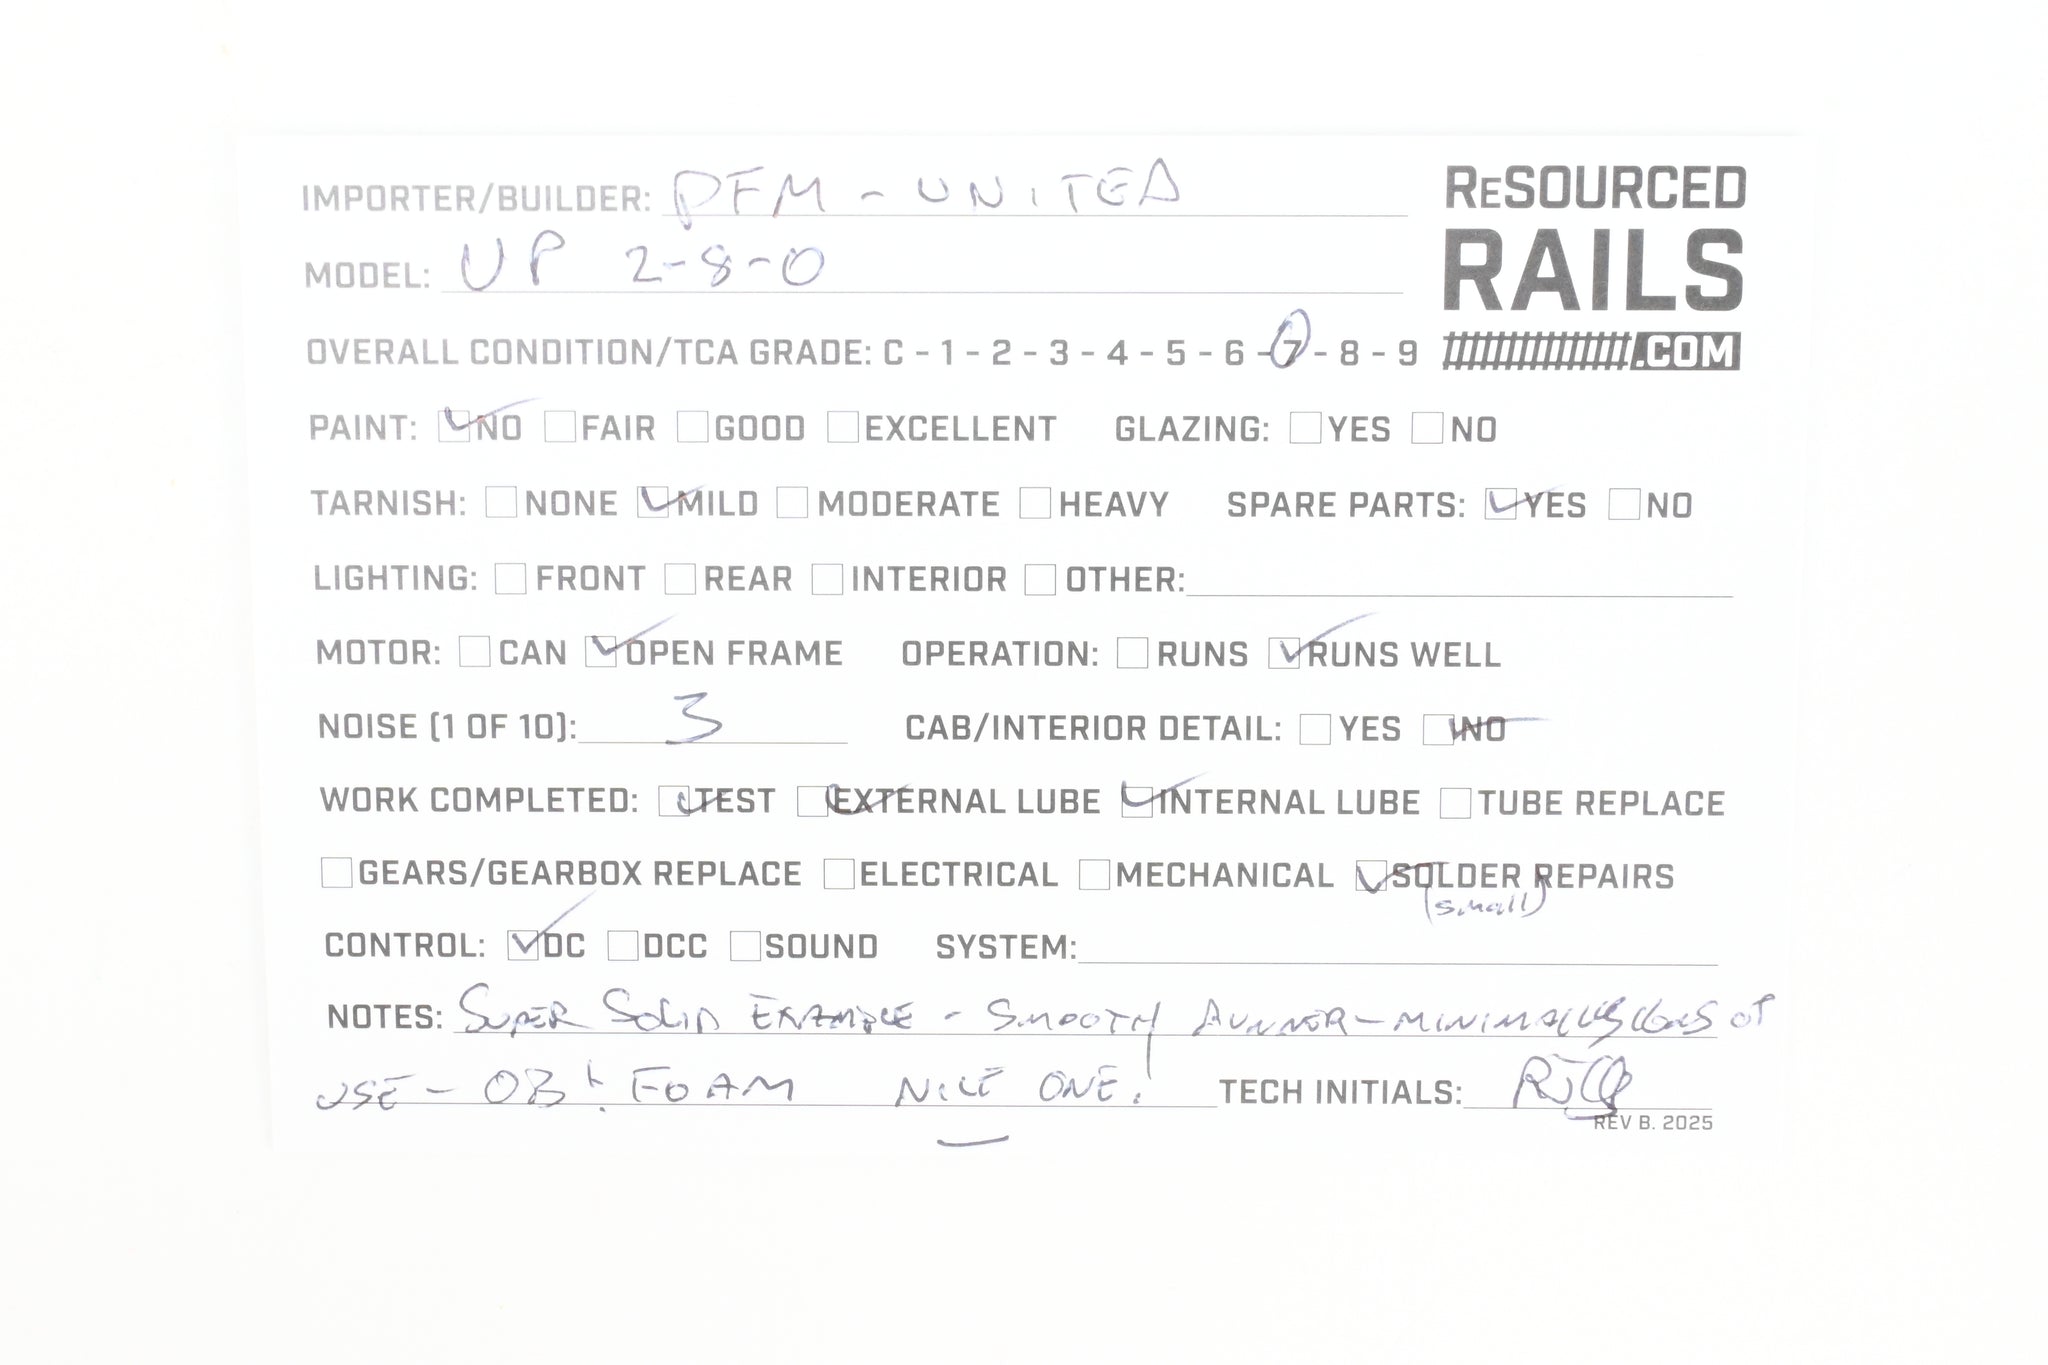 IMPORTER/BUILDER: PFM - UNITED
ReSOURCED
RAILS
.COM
MODEL: UP 2-8-0
OVERALL CONDITION/TCA GRADE: C - 1 - 2 - 3 - 4 - 5 - 6 - 7 - 8 - 9
PAINT: NO FAIR GOOD EXCELLENT GLAZING: YES NO
TARNISH: NONE MILD MODERATE HEAVY SPARE PARTS: YES NO
LIGHTING: FRONT REAR INTERIOR OTHER:
MOTOR: CAN OPEN FRAME OPERATION: RUNS RUNS WELL
NOISE (1 OF 10): 3 CAB/INTERIOR DETAIL: YES NO
WORK COMPLETED: TEST EXTERNAL LUBE INTERNAL LUBE TUBE REPLACE
GEARS/GEARBOX REPLACE ELECTRICAL MECHANICAL SOLDER REPAIRS
(small)
CONTROL: DC DCC SOUND SYSTEM:
NOTES: SUPER SOLID EXAMPLE - SMOOTH RUNNER - MINIMAL SIGNS OF
USE - OB + FOAM NICE ONE! TECH INITIALS:
REV B. 2025